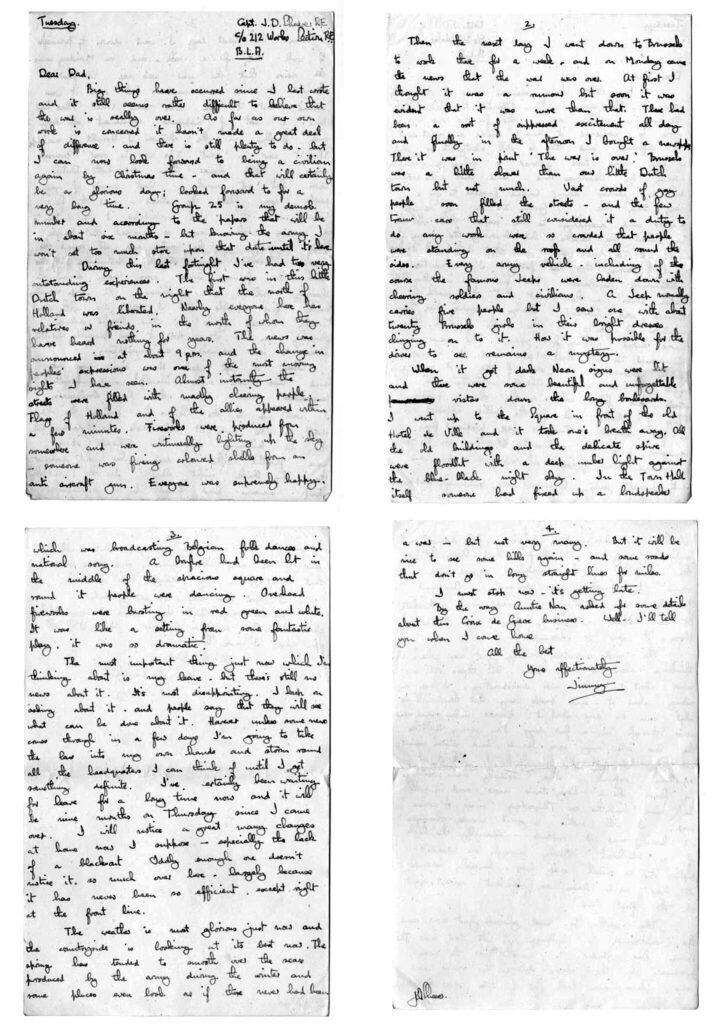 Tuesday.
Capt. J.D. RE.
c/o 212 Works Section R.E
B.L.A.
Dear Dad,
Big things have occured since I last wrote
and it still seems rather difficult to believe that
the war is really over. As far as our own
work is concerned it hasn't made a great deal
of difference. and there is still plenty to do. but
I can now look forward to being a civilian
again by Christmas time - and that will certainly
be a glorious day; looked forward to for a
very long time. Group 25 is my demob
number and according to the papers that will be
in about six months - but knowing the army I
won't set too much store upon that date until it's here
During this last fortnight I've had two very
outstanding experiences. The first was in this little
Dutch town on the night that the north of
Holland was liberated. Nearly everyone here has
relatives or friends in the north of whom they
have heard nothing for years. The news was
announced at about 9 p.m. and the change in
peoples' expressions was one of the most moving
sights I have seen. Almost instantly the
streets were filled with madly cheering people.
Flags of Holland and of the allies appeared within
a few minutes. Fireworks were produced from
somewhere and were continually lighting up the sky
- someone was firing coloured shells from an
anti aircraft gun. Everyone was supremely happy.
2.
Then the next day I went down to Brussels
to work there for a week. and on Monday came
the news that the war was over. At first I
thought it was a rumour but soon it was
evident that it was more than that. There had
been a sort of suppressed excitement all day
and finally in the afternoon I bought a newspaper
There it was in print 'The war is over.' Brussels
was a little slower than our little Dutch
town but not much. Vast crowds of gay
people soon filled the streets - and the few
tram cars that still considered it a duty to
do any work were so crowded that people
were standing on the roofs and all round the
sides. Every army vehicle. including of
course the famous Jeeps were laden down with
cheering soldiers and civilians. A Jeep normally
carries five people but I saw one with about
twenty Brussels girls in their bright dresses
clinging on to it. How it was possible for the
driver to see remains a mystery.
When it got dark Neon signs were lit
and there were some beautiful and unforgettable
vistas down the long boulevards.
I went up to the Square in front of the old
Hotel de Ville and it took one's breath away. All
the old buildings and the delicate spire
were floodlit with a deep amber light against
the blue-black night sky. In the Town Hall
itself someone had fixed up a loudspeaker
3.
which was broadcasting Belgian folk dances and
national song. A bonfire had been lit in
the middle of the spacious square and
round it people were dancing. Overhead
fireworks were bursting in red green and white.
It was like a setting from some fantastic
play. it was so dramatic.
The most important thing just now which I'm
thinking about is my leave. but there's still no
news about it. It's most disappointing. I keep on
asking about it. and people say that they will see
what can be done about it. However unless some news
comes through in a few days I'm going to take
the law into my own hands and storm round
all the headquarters I can think of until I get
something definite. I've certainly been waiting
for leave for a long time now and it will
be nine months on Thursday since I came
over. I will notice a great many changes
at home now I suppose - especially the lack
of a blackout Oddly enough one doesn't
notice it. so much over here - largely because
it has never been so efficient. except right
at the front line.
The weather is most glorious just now and
the countryside is looking at its best now. The
spring has tended to smooth over the scars
produced by the army during the winter and
some places even look as if there never had been
4.
a war - but not very many. But it will be
nice to see some hills again - and some roads
that don't go in long straight lines for miles.
I must stop now - it's getting late.
By the way Auntie Nan asked for some details
about this Croix de Guerre business. Well - I'll tell
you when I come home
All the best
Yours affectionately
Jimmy